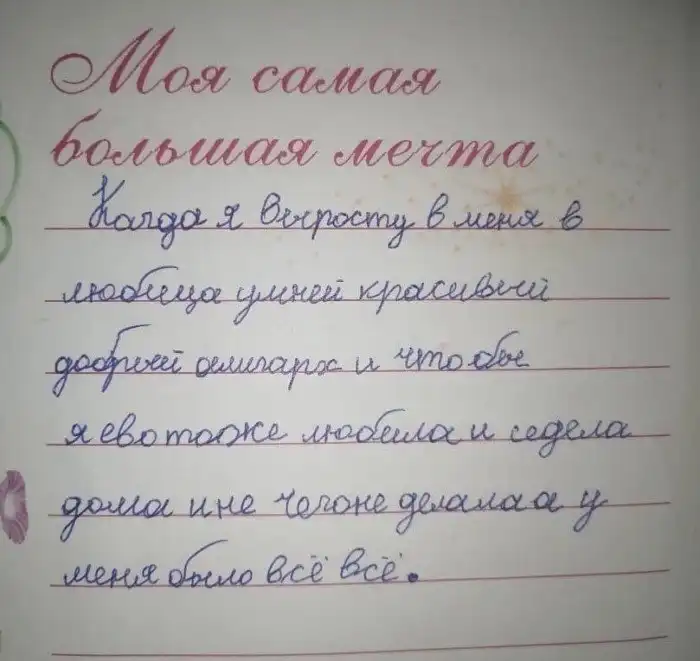 Моя самая
большая мечта
Кагда я выросту в меня в
любица умней красивый
добрый олигарх и что бы
я ево тоже любила и седела
дома и не чегоне делала а у
меня было всё всё.